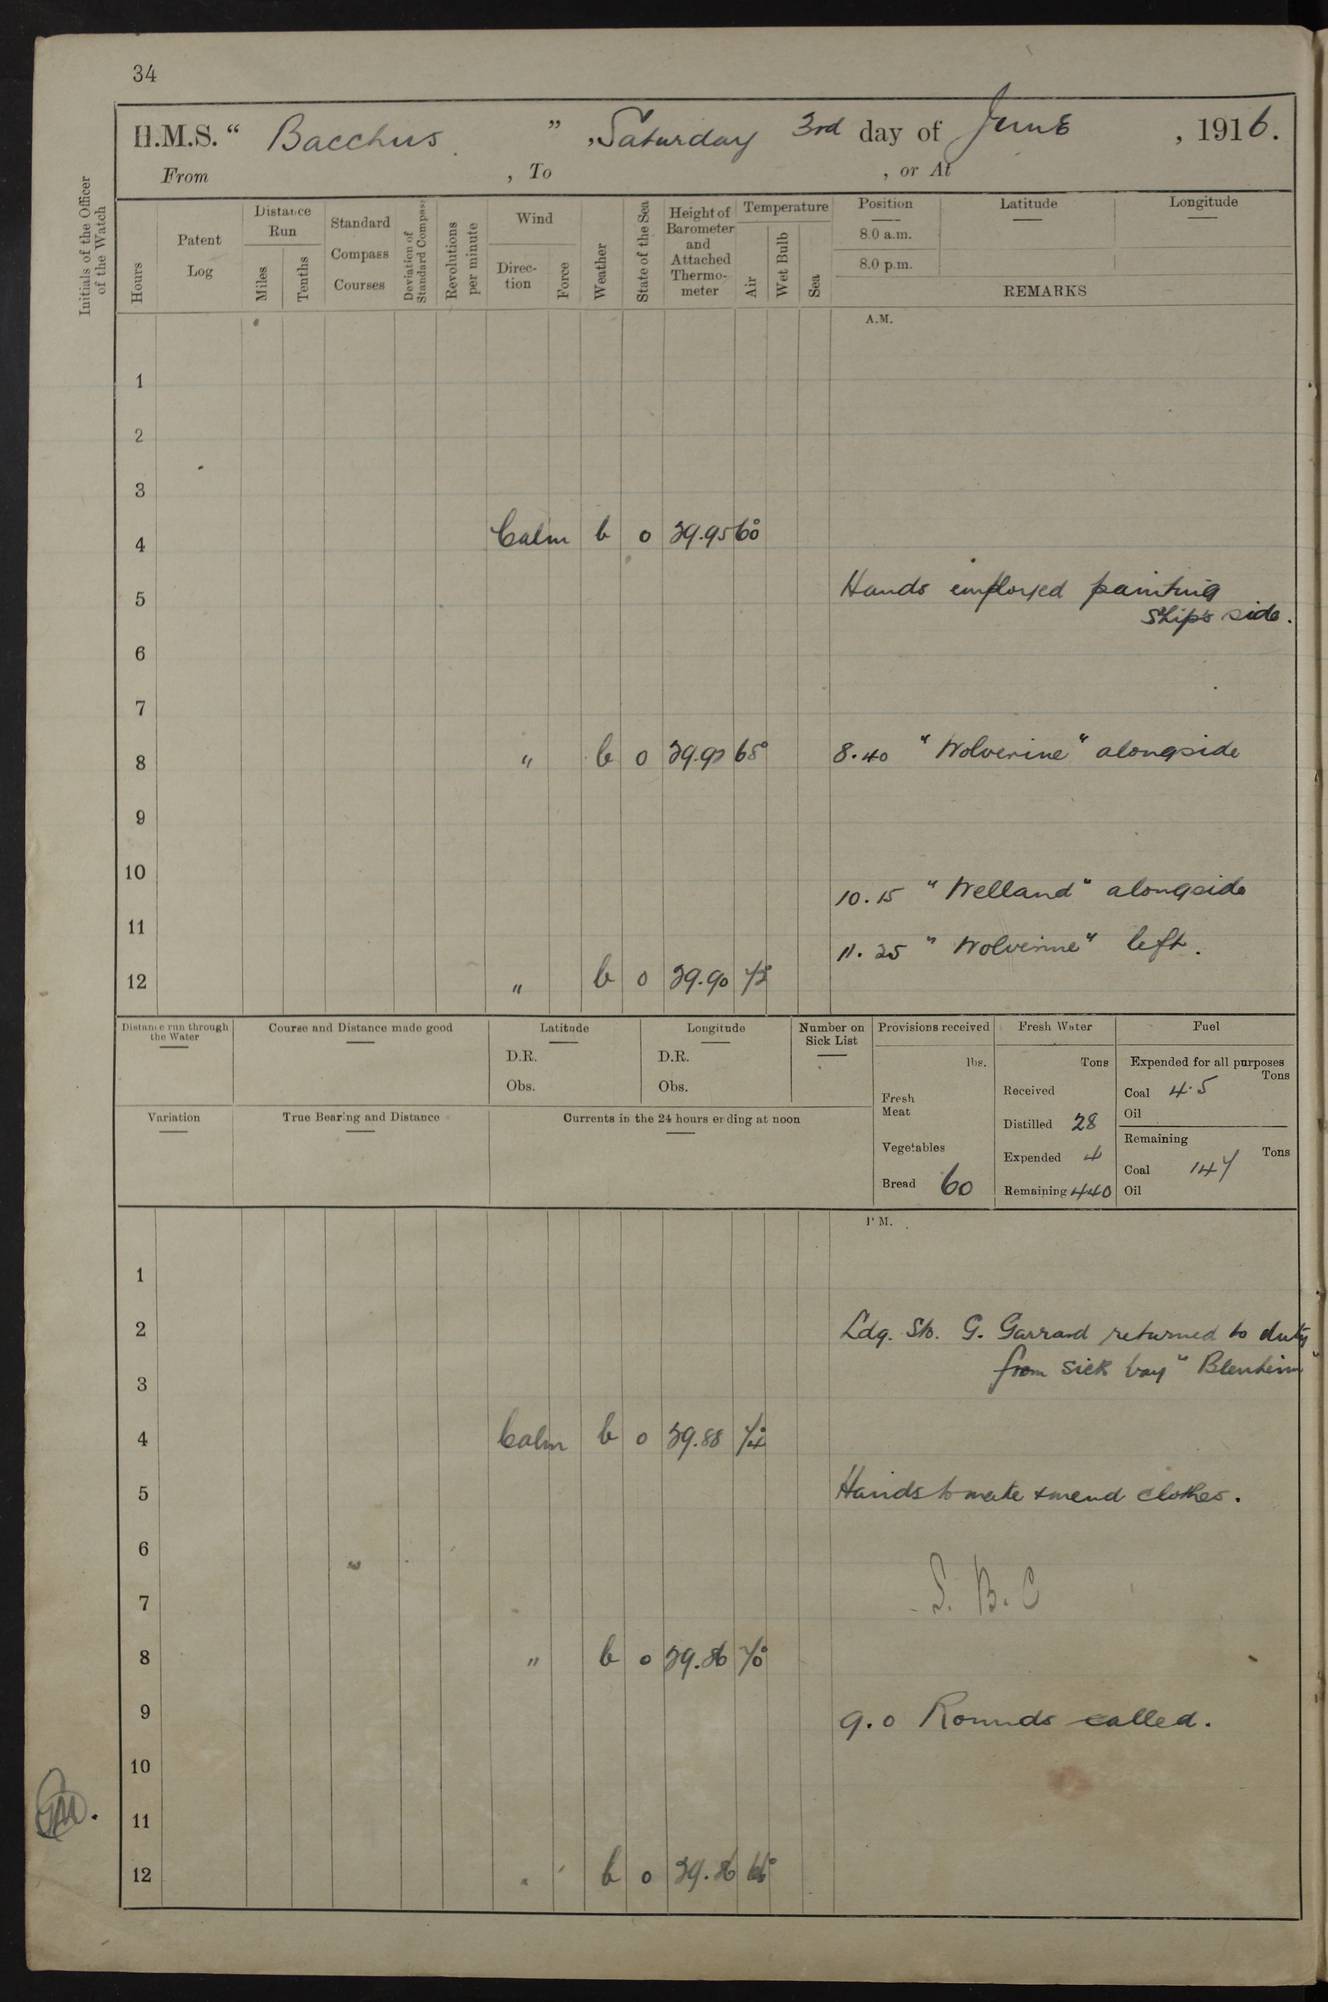 34
H.M.S. “ Bacchus ” , Saturday 3rd day of June , 1916.
From , To , or At
Initials of the Officer of the Watch
Hours
Patent Log
Distance Run
Miles
Tenths
Standard Compass Courses
Deviation of Standard Compass
Revolutions per minute
Wind
Direction
Force
Weather
State of the Sea
Height of Barometer and Attached Thermometer
Temperature
Air
Wet Bulb
Sea
Position
8.0 a.m.
8.0 p.m.
Latitude
Longitude
REMARKS
A.M.
1
2
3
4 Calm b 0 29.95 60°
Hands employed painting
5
ship's side.
6
7
8 " b 0 29.92 65° 8.40 "Wolverine" alongside
9
10
10.15 "Welland" alongside
11
11.25 "Wolverine" left.
12 " b 0 29.90 72°
Distance run through the Water
Course and Distance made good
Latitude
D.R.
Obs.
Longitude
D.R.
Obs.
Number on Sick List
Provisions received
lbs.
Fresh Meat
Vegetables
Bread 60
Fresh Water
Tons
Received
Distilled 28
Expended 4
Remaining 440
Fuel
Expended for all purposes
Tons
Coal 4.5
Oil
Remaining
Tons
Coal 147
Oil
Variation
True Bearing and Distance
Currents in the 24 hours ending at noon
P.M.
1
2 Ldg. Sto. G. Garrard returned to duty
from sick bay "Blenheim"
3
4 Calm b 0 29.88 74°
5 Hands to make & mend clothes.
6
7 S. B. C
8 " b 0 29.86 70°
9 9.0 Rounds called.
10
11
12 " b 0 29.86 66°